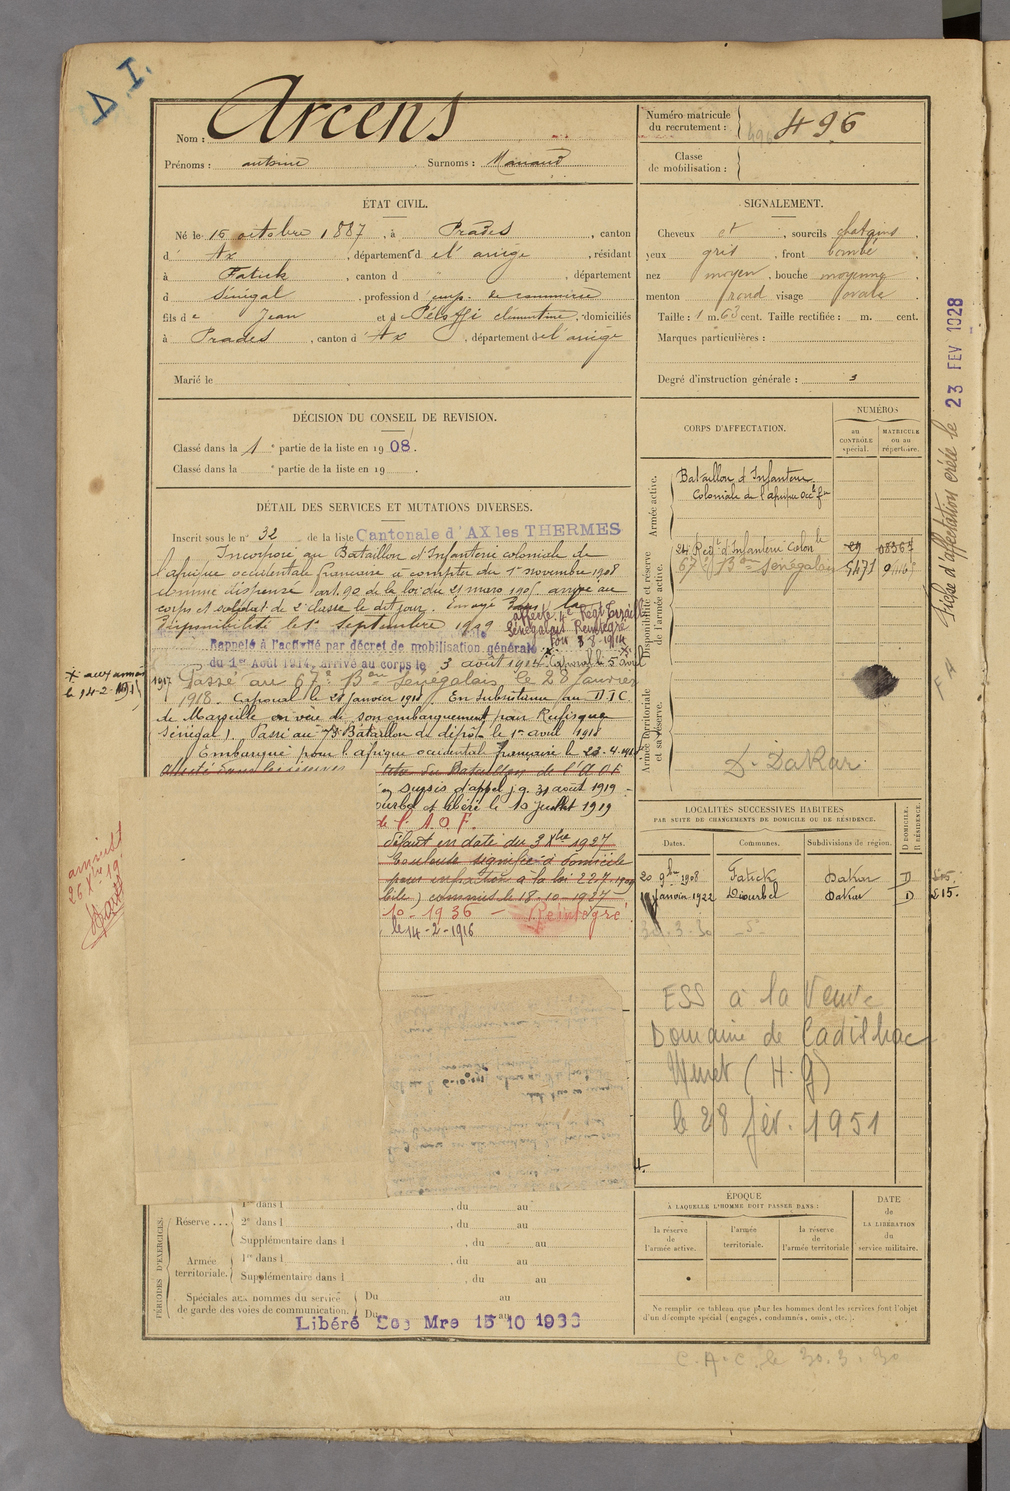 D.I.
Nom : Arcens
Prénoms : antoine Surnoms :
Numéro matricule
du recrutement : 496
Classe
de mobilisation :
ÉTAT CIVIL.
Né le 16 octobre 1887, à Prades, canton
d' Ax, département d e l'ariège, résidant
à Fatick, canton d , département
d Sénégal, profession d' emp. de commerce
fils de Jean et d clémentine, domiciliés
à Prades, canton d' Ax, département de l'ariège
Marié le
SIGNALEMENT.
Cheveux ct, sourcils chatains.
yeux gris, front bombé
nez moyen, bouche moyenne
menton rond visage ovale
Taille : 1 m. 63 cent. Taille rectifiée : m. cent.
Marques particulières :
Degré d'instruction générale : 3
DÉCISION DU CONSEIL DE REVISION.
Classé dans la 1e partie de la liste en 1908.
Classé dans la e partie de la liste en 19 .
CORPS D'AFFECTATION.
NUMÉROS
au
CONTRÔLE
spécial.
MATRICULE
ou au
répertoire.
Armée active.
Bataillon d'Infanterie
Coloniale de l'afrique
Disponibilité et réserve
de l'armée active.
24e Regt d'Infanterie Colonle
67e Bon Sénégalais 5471
Armée territoriale
et sa réserve.
D. Dakar.
Fiche d'affectation créée le 23 FEV 1928
DÉTAIL DES SERVICES ET MUTATIONS DIVERSES.
Inscrit sous le n° 32 de la liste Cantonale d'AX les THERMES
Incorporé au Bataillon d'Infanterie coloniale de
l'afrique occidentale française à compter du 1er novembre 1908
comme dispensé art. 90 de la loi du 21 mars 1905. arrivé au
corps et soldat de 2e classe le dit jour. Envoyé dans la
disponibilité le 1er septembre 1909
affecté 4e Regt Tiraill
Sénégalais Reintégré
Rappelé à l'activité par décret de mobilisation générale
du 1er Août 1914, arrivé au corps le 3 août 1914. Caporal le 5 avril
x aux armées
le 14-2-1915
1917 Passé au 67e Bon Senegalais, le 28 janvier
1918. Caporal le 28 janvier 1918. En subsistance au D.I.C
de Marseille en vue de son embarquement pour Rufisque
(Sénégal). Passé au Bataillon de dépôt le 1er avril 1918
Embarqué pour l'afrique occidentale française le 23.4.1918
du Bataillon de l'A.O.F
en sursis d'appel jq. 31 août 1919
ourbel et libéré le 10 juillet 1919
de l'A.O.F.
défaut en date du 3 Xbre 1927
Toulouse signifié à domicile
pour infraction à la loi
commis le 18-10-1927
10-1936 - Réintégré
le 14-2-1916
26 Xbre 19
LOCALITÉS SUCCESSIVES HABITÉES
PAR SUITE DE CHANGEMENTS DE DOMICILE OU DE RÉSIDENCE.
Dates.
Communes.
Subdivisions de région.
D DOMICILE.
R RÉSIDENCE.
20 9bre 1908 Fatick Dakar D
janvier 1922 Diourbel Dakar D 515.
30.3.30
ESS à la Veuve
Domaine de Cadilhac
(H.G)
le 28 fév. 1951
PÉRIODES D'EXERCICES.
Réserve ...
1re dans l , du au
2e dans l , du au
Supplémentaire dans l , du au
Armée
territoriale.
1re dans l , du au
Supplémentaire dans l , du au
Spéciales aux hommes du service
de garde des voies de communication.
Du au
Du au
Libéré Mre 15 10 1936
ÉPOQUE
À LAQUELLE L'HOMME DOIT PASSER DANS :
la réserve
de
l'armée active.
l'armée
territoriale.
la réserve
de
l'armée territoriale
DATE
de
LA LIBÉRATION
du
service militaire.
Ne remplir ce tableau que pour les hommes dont les services font l'objet
d'un décompte spécial (engagés, condamnés, omis, etc.).
C.A.C. le 30.3.30